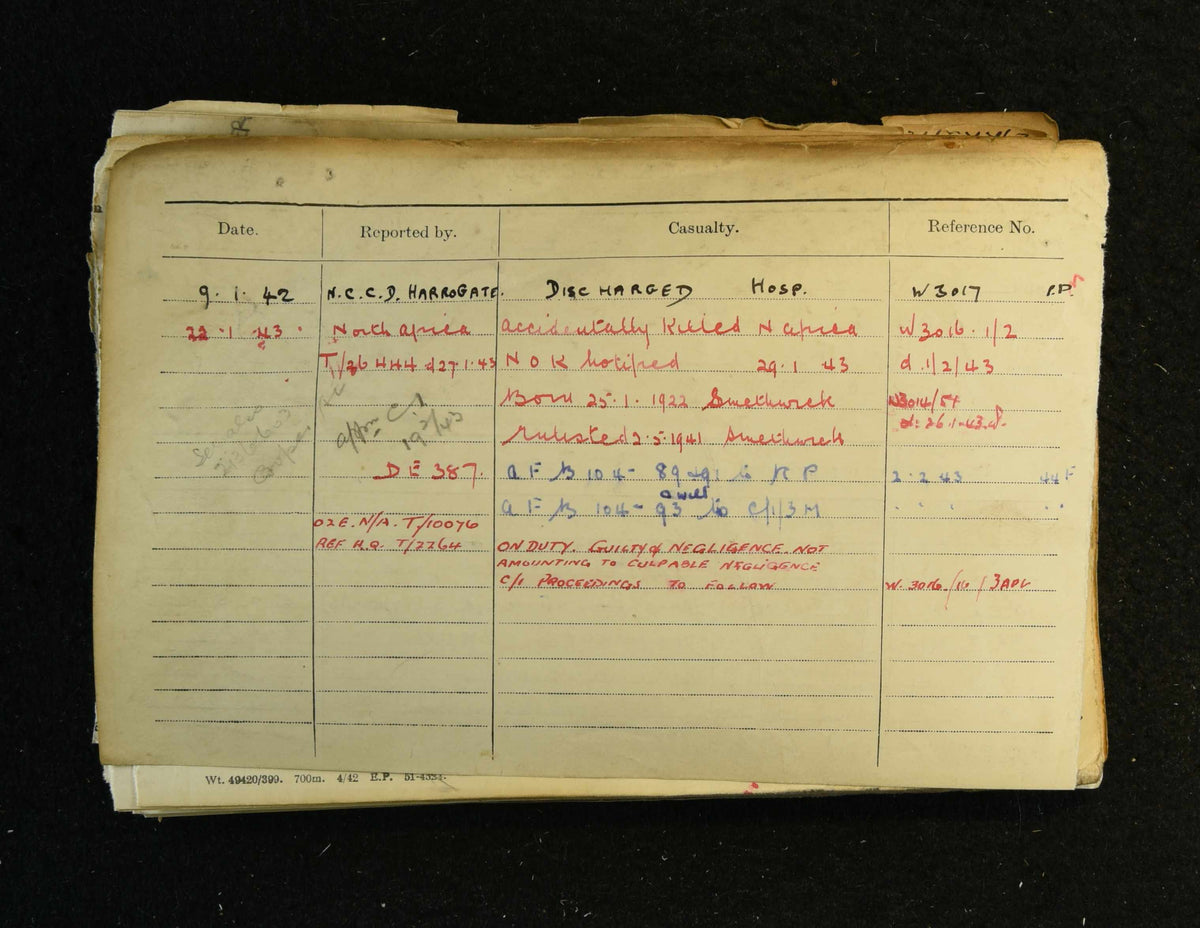 Date. Reported by. Casualty. Reference No.
9. 1. 42 N.C.C.D. HARROGATE. DISCHARGED HOSP. W3017 P.P.
22.1.43. North africa accidentally Killed N africa W3016.1/2
T/36444 d 27.1.43 N O K notified 29.1 43 d.1/2/43
Born 25.1.1922 Smethwick W3014/54
d: 26.1.43
Enlisted 2.5.1941 Smethwick
appm C.I
19 2/43
DE 387. A F B 104- 89+91 to R P 2.2 43
& will
A F B 104- 93 to C/1/3 M
02E. N/A. T/10076
REF H.Q. T/2264 ON DUTY. GUILTY of NEGLIGENCE NOT
AMOUNTING TO CULPABLE NEGLIGENCE
C/I PROCEEDINGS TO FOLLOW W. 3016./16 / 3 APL
Wt. 49420/399. 700m. 4/42 E.P. 51-4334.